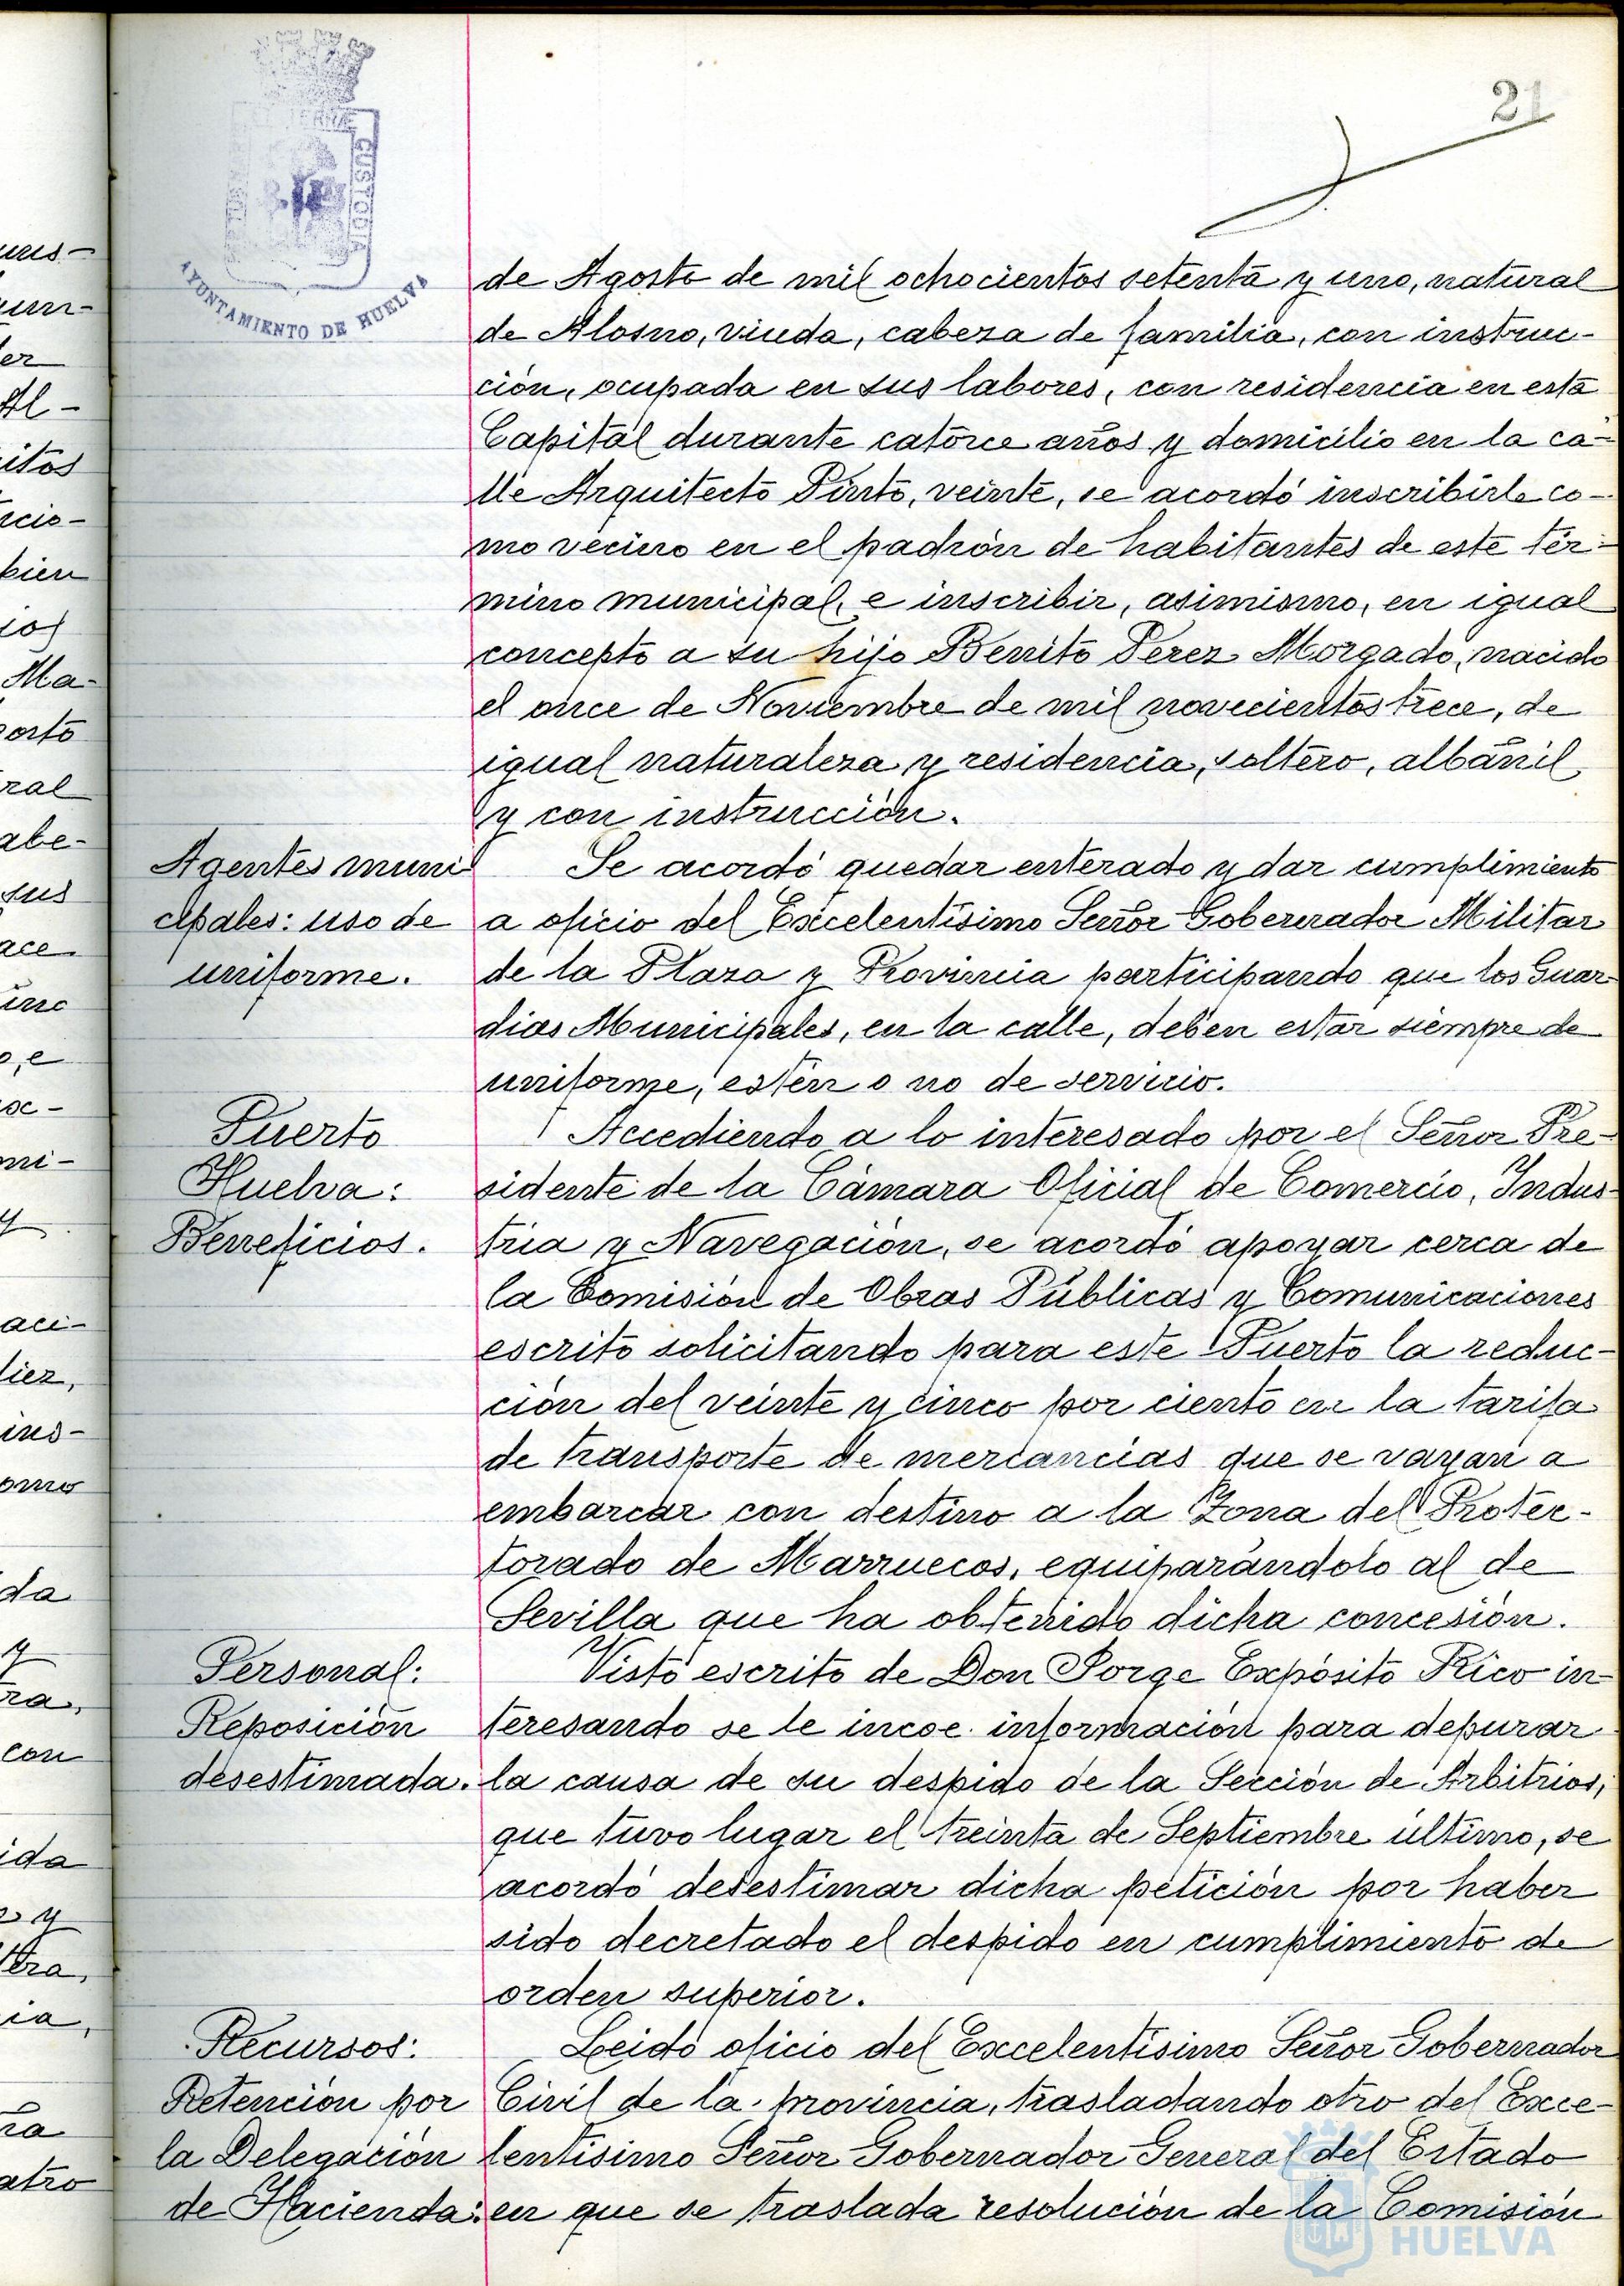 21
PORTUS
TERRAE
CUSTODIA
AYUNTAMIENTO DE HUELVA
de Agosto de mil ochocientos setenta y uno, natural
de Alosno, viuda, cabeza de familia, con instruc-
ción, ocupada en sus labores, con residencia en esta
Capital durante catorce años y domicilio en la ca-
lle Arquitecto Pinto, veinte, se acordó inscribirle co-
mo vecino en el padrón de habitantes de este tér-
mino municipal, e inscribir, asimismo, en igual
concepto a su hijo Benito Perez Morgado, nacido
el once de Noviembre de mil novecientos trece, de
igual naturaleza y residencia, soltero, albañil
y con instrucción.
Agentes muni
cipales: uso de
uniforme.
Se acordó quedar enterado y dar cumplimiento
a oficio del Excelentísimo Señor Gobernador Militar
de la Plaza y Provincia participando que los Guar-
dias Municipales, en la calle, deben estar siempre de
uniforme, estén o no de servicio.
Puerto
Huelva:
Beneficios.
Accediendo a lo interesado por el Señor Pre-
sidente de la Cámara Oficial de Comercio, Indus-
tria y Navegación, se acordó apoyar cerca de
la Comisión de Obras Públicas y Comunicaciones
escrito solicitando para este Puerto la reduc-
ción del veinte y cinco por ciento en la tarifa
de transporte de mercancías que se vayan a
embarcar con destino a la Zona del Protec-
torado de Marruecos, equiparándolo al de
Sevilla que ha obtenido dicha concesión.
Personal:
Reposición
desestimada.
Visto escrito de Don Jorge Expósito Rico in-
teresando se le incoe información para depurar
la causa de su despido de la Sección de Arbitrios,
que tuvo lugar el treinta de Septiembre último, se
acordó desestimar dicha petición por haber
sido decretado el despido en cumplimiento de
orden superior.
Recursos:
Retención por
la Delegación
de Hacienda:
Leido oficio del Excelentísimo Señor Gobernador
Civil de la provincia, trasladando otro del Exce-
lentísimo Señor Gobernador General del Estado
en que se traslada resolución de la Comisión
HUELVA